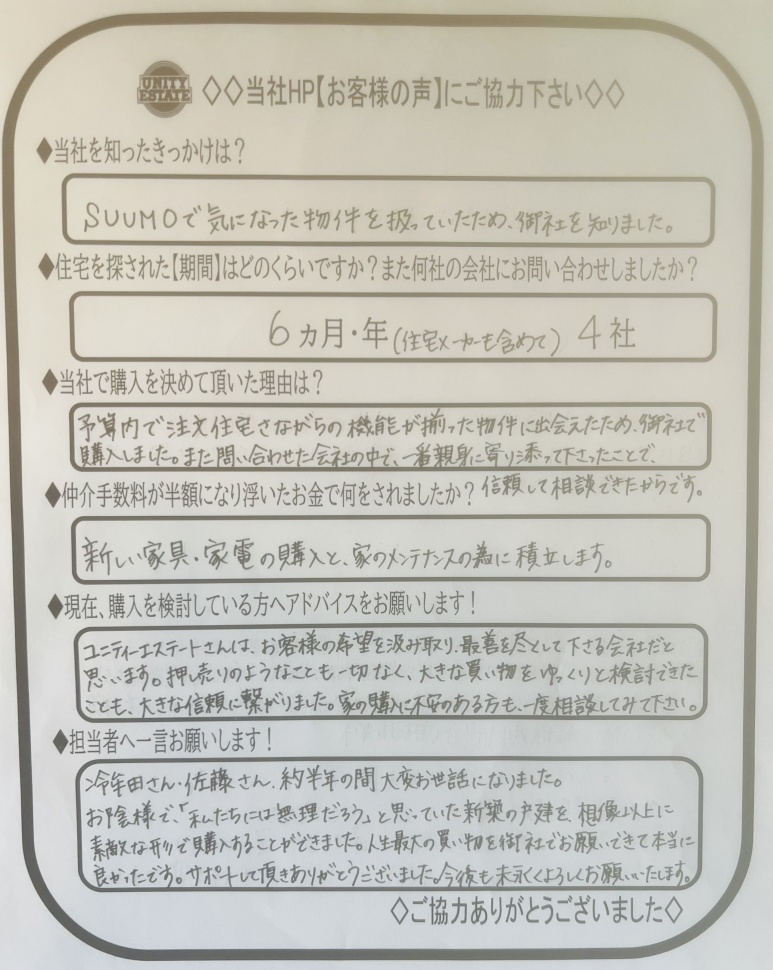 UNITY
ESTATE
◇◇当社HP【お客様の声】にご協力下さい◇◇
◆当社を知ったきっかけは？
SUUMOで気になった物件を扱っていたため、御社を知りました。
◆住宅を探された【期間】はどのくらいですか？また何社の会社にお問い合わせしましたか？
6カ月・年(住宅メーカーも含めて) 4社
◆当社で購入を決めて頂いた理由は？
予算内で注文住宅さながらの機能が揃った物件に出会えたため、御社で
購入しました。また問い合わせた会社の中で、一番親身に寄り添って下さったことで、
信頼して相談できたからです。
◆仲介手数料が半額になり浮いたお金で何をされましたか？
新しい家具・家電の購入と、家のメンテナンスの為に積立します。
◆現在、購入を検討している方へアドバイスをお願いします！
ユニティーエステートさんは、お客様の希望を汲み取り、最善を尽として下さる会社だと
思います。押し売りのようなことも一切なく、大きな買い物をゆっくりと検討できた
ことも、大きな信頼に繋がりました。家の購入に不安のある方も、一度相談してみて下さい。
◆担当者へ一言お願いします！
冷牟田さん・佐藤さん、約半年の間大変お世話になりました。
お陰様で、「私たちには無理だろう」と思っていた新築の戸建を、想像以上に
素敵な形で購入することができました。人生最大の買い物を御社でお願いできて本当に
良かったです。サポートして頂きありがとうございました。今後も末永くよろしくお願いいたします。
◇ご協力ありがとうございました◇